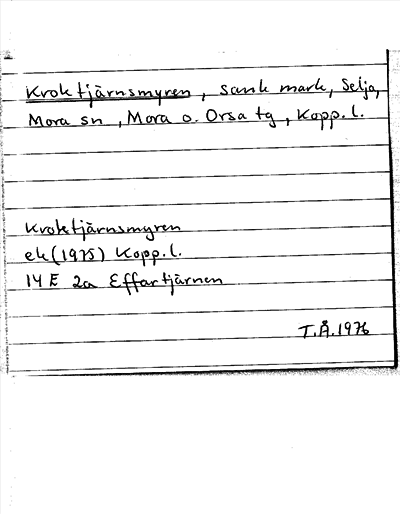 Kroktjärnsmyren, sank mark, Selja,
Mora sn, Mora o. Orsa tg, Kopp.l.
Kroktjärnsmyren
ek (1975) Kopp.l.
14 E 2a Effartjärnen
T.Å. 1976